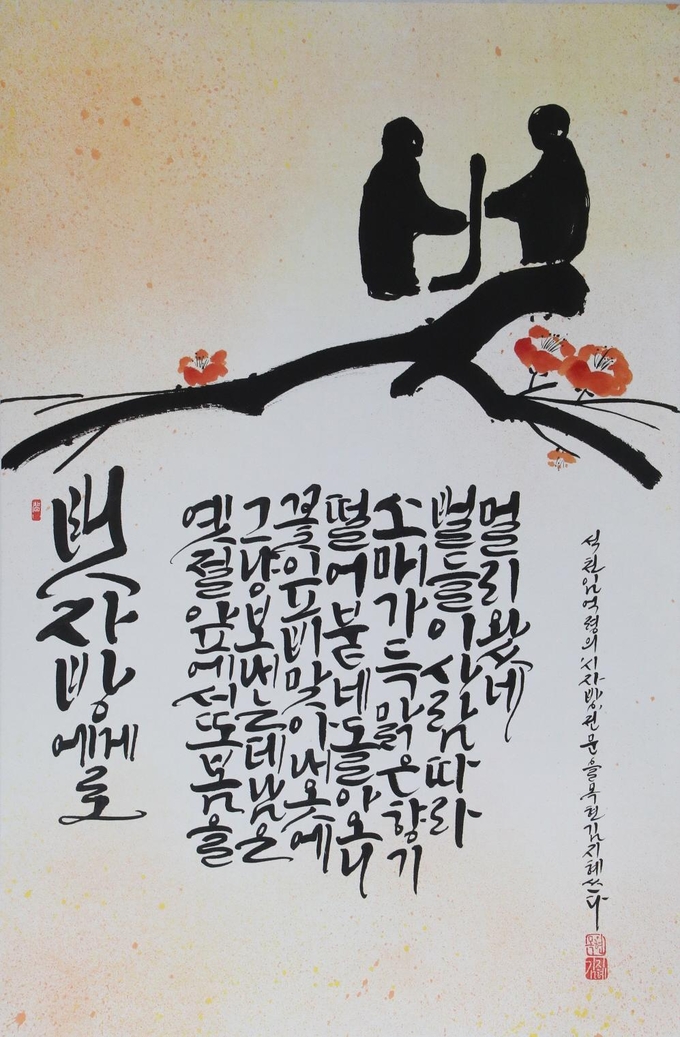 벗 자방에게로
옛 절 앞에서 또 봄을
그냥 보내는데 남은
꽃잎 비 맞아 내 옷에
떨어 붙네 돌아오니
소매 가득 맑은 향기
벌들이 사람 따라
멀리 왔네
석천 임억령의 '시자방' 전문을 목현 김지혜 쓰다